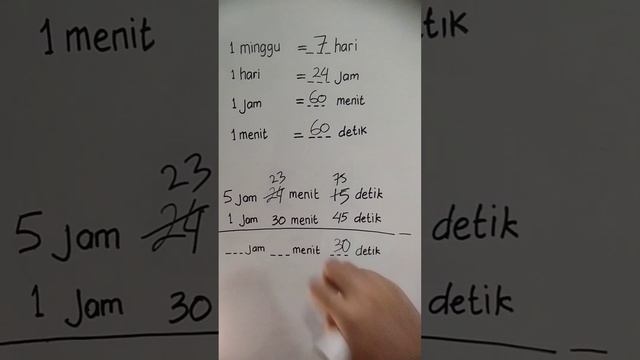 1 menit
tik
1 minggu = 7 hari
1 hari = 24 Jam
1 Jam = 60 menit
1 menit = 60 detik
23 75
5 Jam 24 menit 15 detik
1 Jam 30 menit 45 detik
___ Jam ___ menit 30 detik
23
5 Jam 24
1 Jam 30
detik